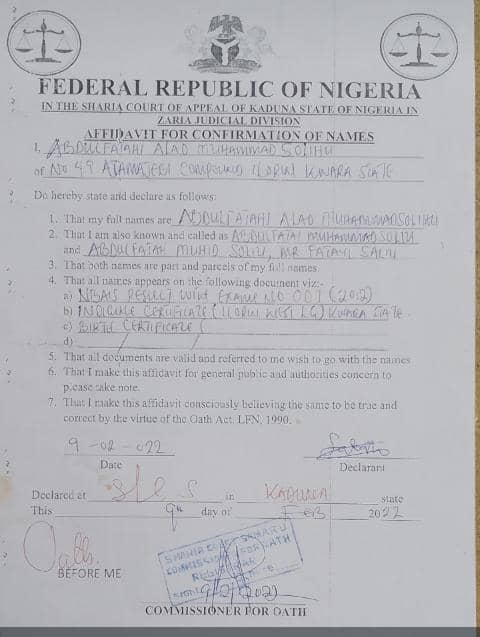 FEDERAL REPUBLIC OF NIGERIA
IN THE SHARIA COURT OF APPEAL OF KADUNA STATE OF NIGERIA IN
ZARIA JUDICIAL DIVISION
AFFIDAVIT FOR CONFIRMATION OF NAMES
I, ABDULFATAHI ALAO MUHAMMAD SOLIHU
of NO 49 ATAMAJEBI COMPOUND ILORIN KWARA STATE
Do hereby state and declare as follows:
1. That my full names are ABDULFATAHI ALAO MUHAMMAD SOLIHU
2. That I am also known and called as ABDULFATAI MUHAMMAD SOLIU
and ABDULFATAH MUHID SOLIU, MR FATAYI SALIU
3. That both names are part and parcels of my full names
4. That all names appears on the following document viz:-
a) NBAIS RESULT WITH EXAM NO 001 (2012)
b) INDIGINE CERTIFICATE (ILORIN WEST LG) KWARA STATE
c) BIRTH CERTIFICATE (
d)
5. That all documents are valid and referred to me wish to go with the names
6. That I make this affidavit for general public and authorities concern to
please take note.
7. That I make this affidavit consciously believing the same to be true and
correct by the virtue of the Oath Act. LFN, 1990.
9-02-022
Date Declarant
Declared at in KADUNA state
This 9th day of FEB 2022
BEFORE ME
SHARIA COURT SAMARU
COMMISSIONER FOR OATH
9/2/2022
COMMISSIONER FOR OATH